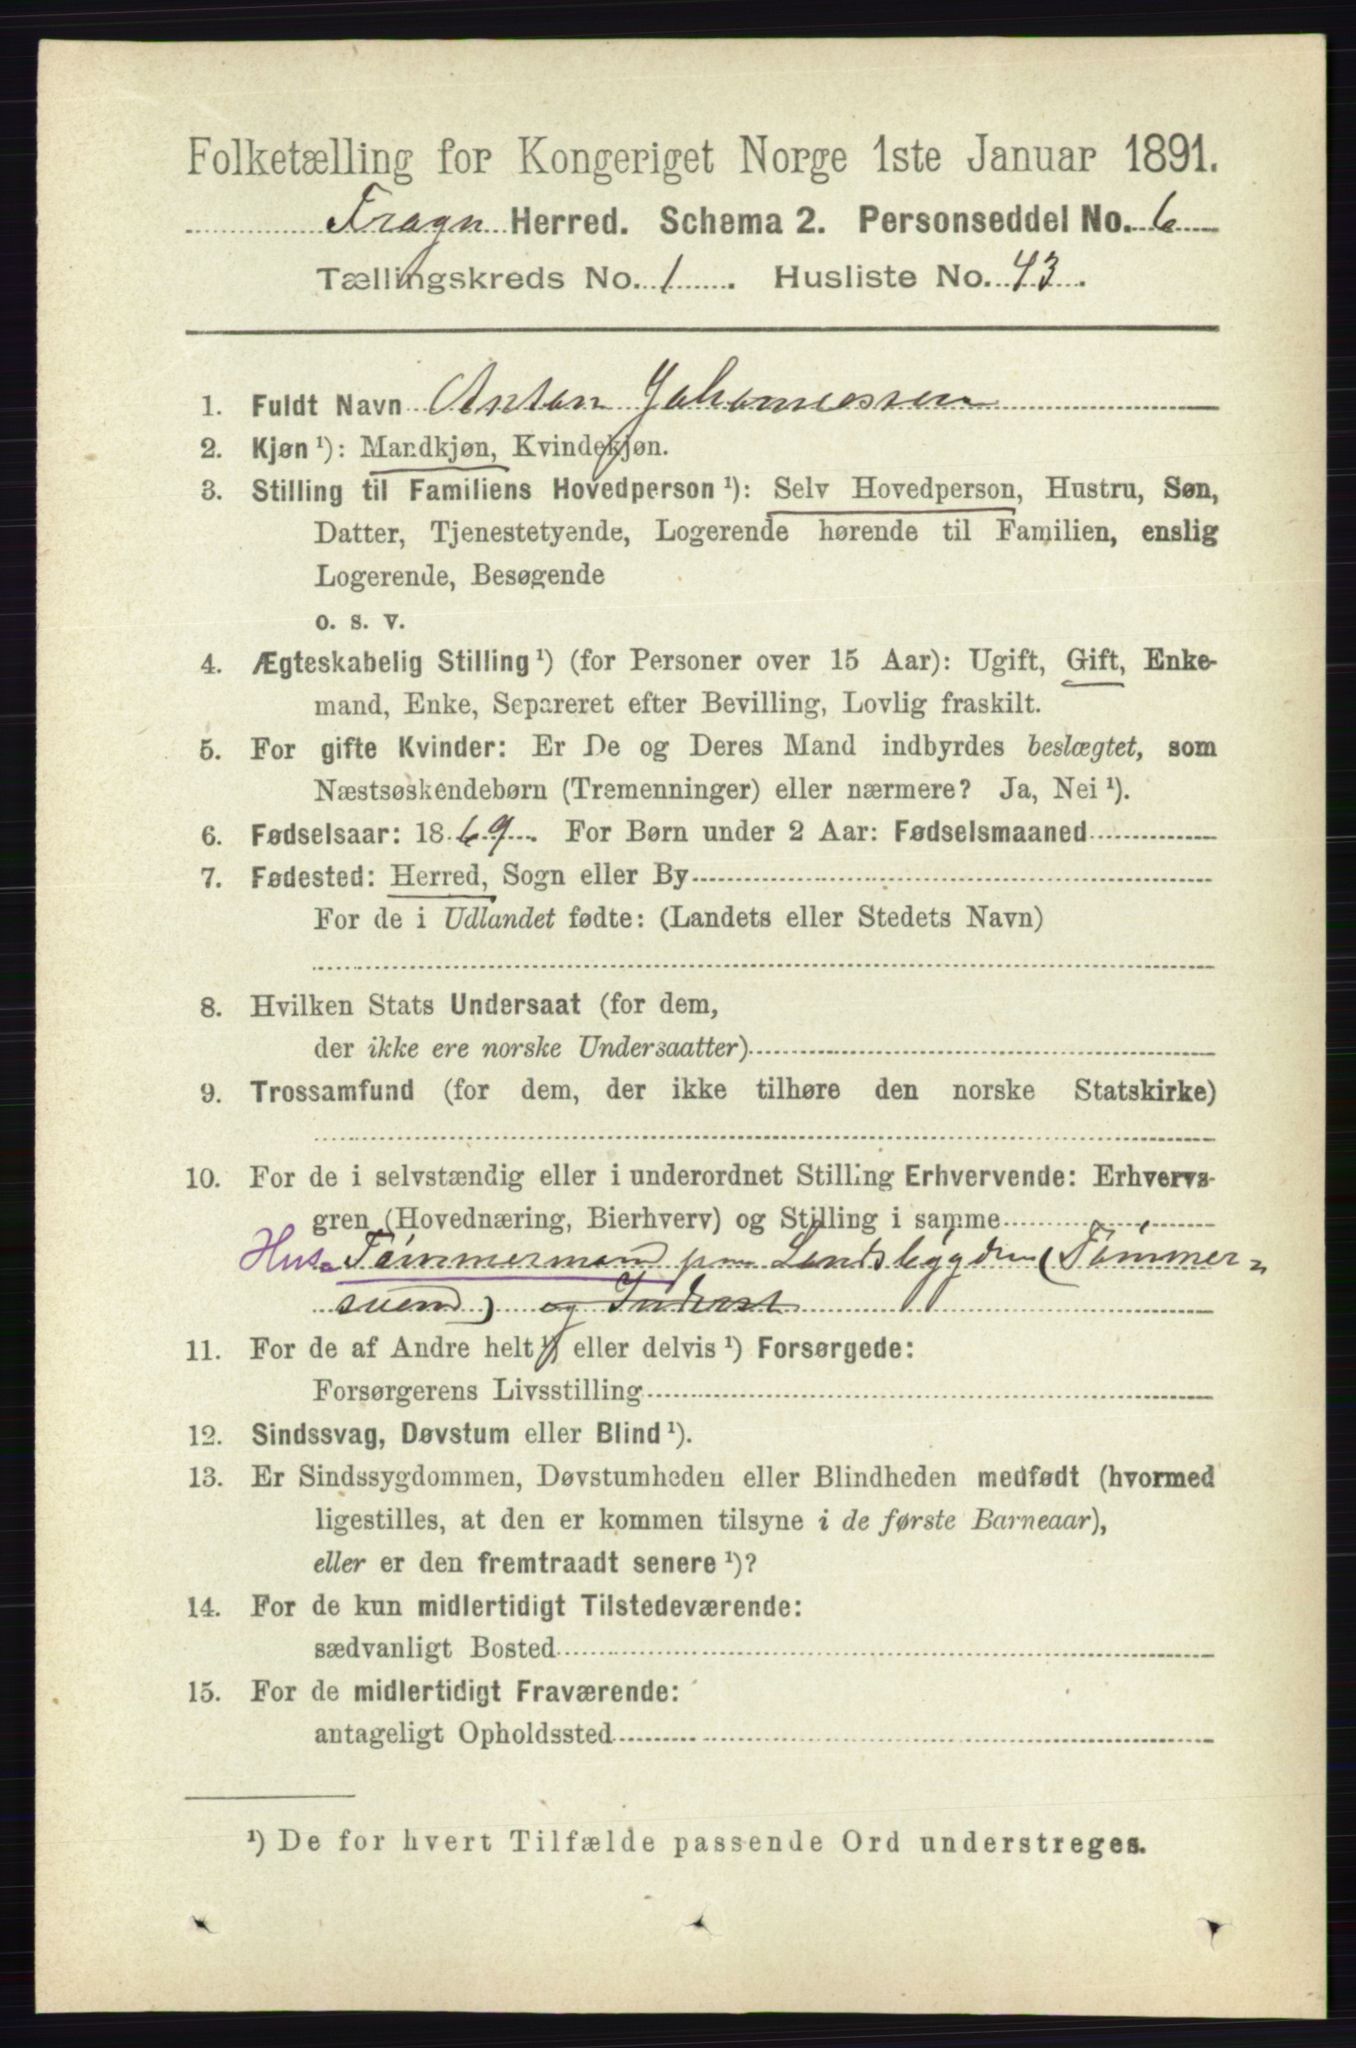 Folketælling for Kongeriget Norge 1ste Januar 1891.
Frogn Herred. Schema 2. Personseddel No. 6
Tællingskreds No. 1. Husliste No. 43.
1. Fuldt Navn Anton Johannessen
2. Kjøn ¹): Mandkjøn, Kvindekjøn.
3. Stilling til Familiens Hovedperson ¹): Selv Hovedperson, Hustru, Søn,
Datter, Tjenestetyende, Logerende hørende til Familien, enslig
Logerende, Besøgende
o. s. v.
4. Ægteskabelig Stilling ¹) (for Personer over 15 Aar): Ugift, Gift, Enke-
mand, Enke, Separeret efter Bevilling, Lovlig fraskilt.
5. For gifte Kvinder: Er De og Deres Mand indbyrdes beslægtet, som
Næstsøskendebørn (Tremenninger) eller nærmere? Ja, Nei ¹).
6. Fødselsaar: 1869. For Børn under 2 Aar: Fødselsmaaned
7. Fødested: Herred, Sogn eller By
For de i Udlandet fødte: (Landets eller Stedets Navn)
8. Hvilken Stats Undersaat (for dem,
der ikke ere norske Undersaatter)
9. Trossamfund (for dem, der ikke tilhøre den norske Statskirke)
10. For de i selvstændig eller i underordnet Stilling Erhvervende: Erhvervs-
gren (Hovednæring, Bierhverv) og Stilling i samme
Hus- Tømmermand paa Landsbygden (Tømmer-
svend) og Inderst
11. For de af Andre helt ¹) eller delvis ¹) Forsørgede:
Forsørgerens Livsstilling
12. Sindssvag, Døvstum eller Blind ¹).
13. Er Sindssygdommen, Døvstumheden eller Blindheden medfødt (hvormed
ligestilles, at den er kommen tilsyne i de første Barneaar),
eller er den fremtraadt senere ¹)?
14. For de kun midlertidigt Tilstedeværende:
sædvanligt Bosted
15. For de midlertidigt Fraværende:
antageligt Opholdssted
¹) De for hvert Tilfælde passende Ord understreges.